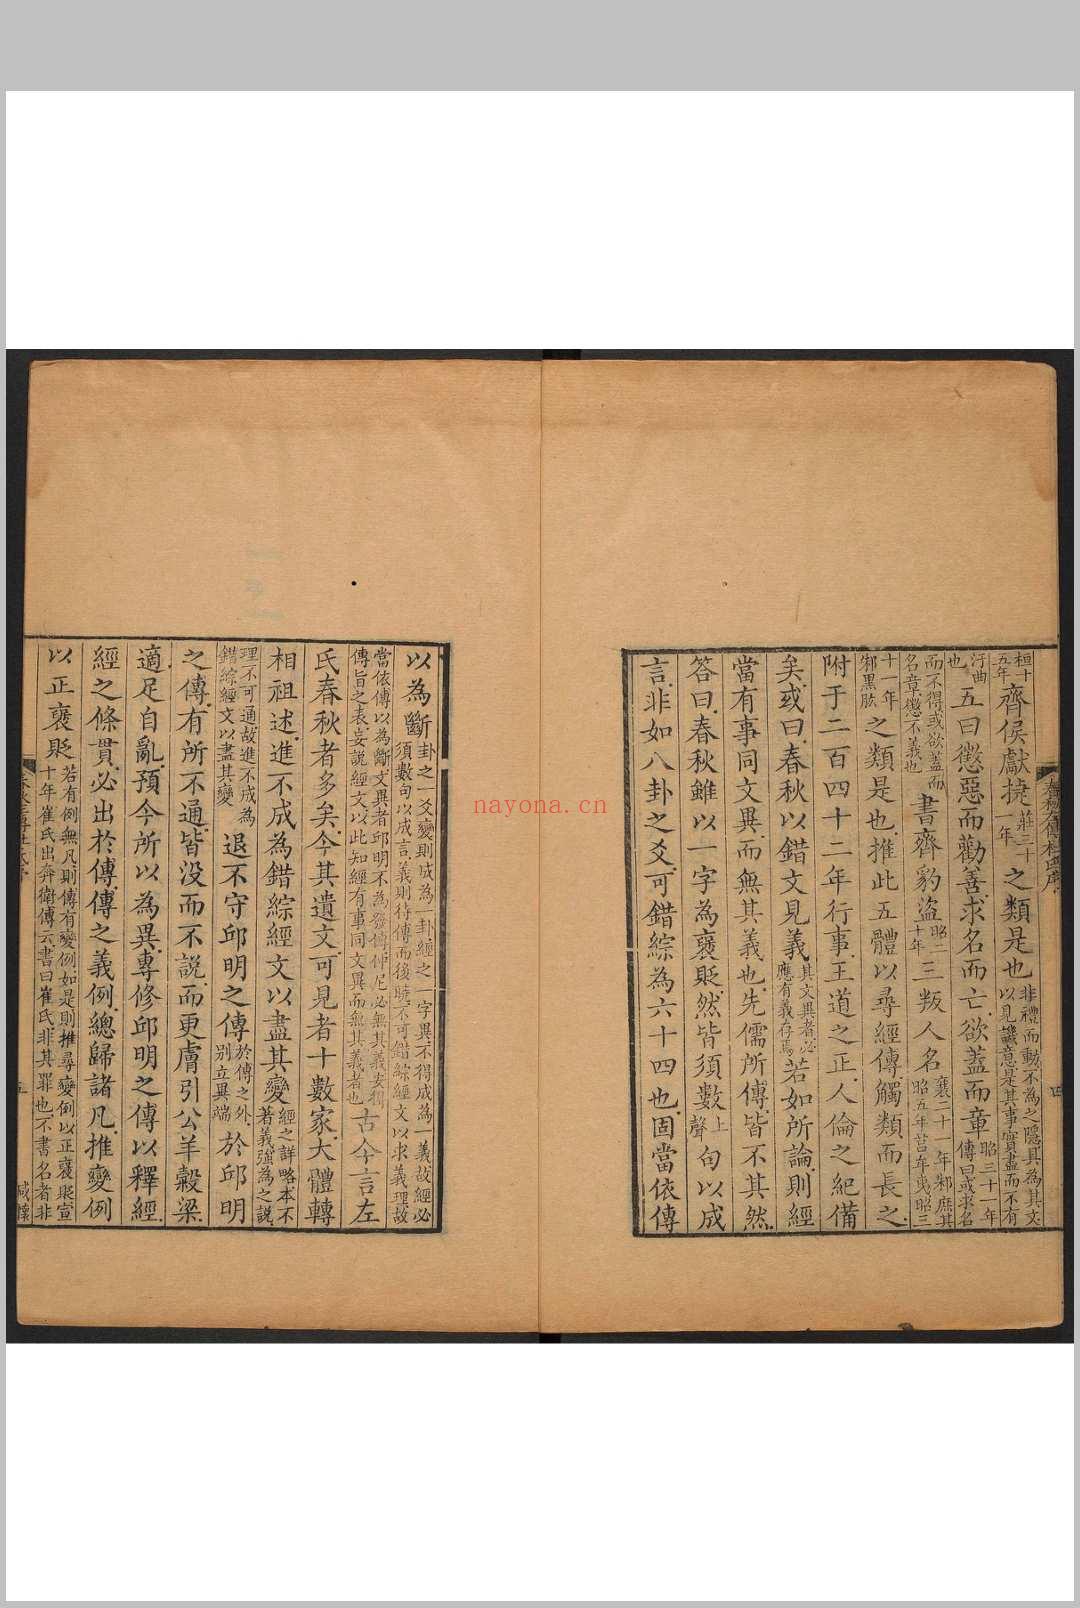 春秋左傳杜氏序
四
桓十五年齊侯獻捷莊三十一年之類是也非禮而動不為之隱具為其文以見譏意是其事實盡而不有
汙曲也五曰懲惡而勸善求名而亡欲蓋而章昭三十一年傳曰或求名
而不得或欲蓋而名章懲不義也書齊豹盜昭二十年三叛人名襄二十一年邾庶其昭五年莒牟夷昭三
十一年邾黑肱之類是也推此五體以尋經傳觸類而長之
附于二百四十二年行事王道之正人倫之紀備
矣或曰春秋以錯文見義其文異者必應有義存焉若如所論則經
當有事同文異而無其義也先儒所傳皆不其然
答曰春秋雖以一字為襃貶然皆須數上聲句以成
言非如八卦之爻可錯綜為六十四也固當依傳
以為斷卦之一爻變則成為一卦經之一字異不得成為一義故經必須數句以成言義則待傳而後曉不可錯綜經文以求義理故
當依傳以為斷文異者邱明不為發傳仲尼必無其義安得傳旨之表妄說經文以此知經有事同文異而無其義者也古今言左
氏春秋者多矣今其遺文可見者十數家大體轉
相祖述進不成為錯綜經文以盡其變經之詳略本不著義強為之說
理不可通故進不成為錯綜經文以盡其變退不守邱明之傳於傳之外別立異端於邱明
之傳有所不通皆沒而不說而更膚引公羊穀梁
適足自亂預今所以為異專修邱明之傳以釋經
經之條貫必出於傳傳之義例總歸諸凡推變例
以正襃貶若有例無凡則傳有變例如是則推尋變例以正襃貶宣十年崔氏出奔衛傳云書曰崔氏非其罪也不書名者非
五
nayona.cn